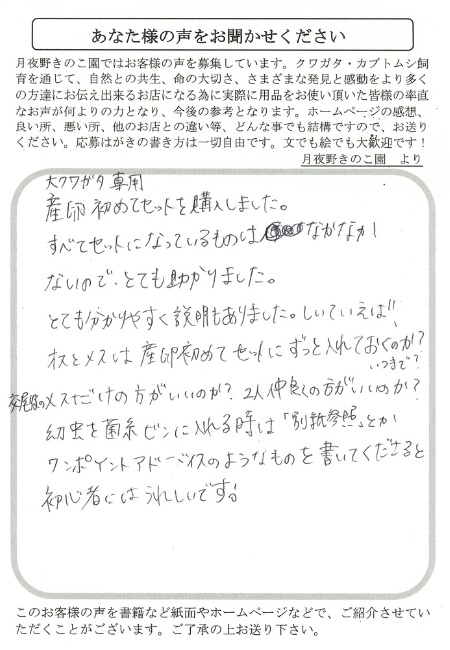 あなた様の声をお聞かせください
月夜野きのこ園ではお客様の声を募集しています。クワガタ・カブトムシ飼
育を通じて、自然との共生、命の大切さ、さまざまな発見と感動をより多く
の方達にお伝え出来るお店になる為に実際に用品をお使い頂いた皆様の率直
なお声が何よりの力となり、今後の参考となります。ホームページの感想、
良い所、悪い所、他のお店との違い等、どんな事でも結構ですので、お送り
ください。応募はがきの書き方は一切自由です。文でも絵でも大歓迎です！
月夜野きのこ園 より
大クワガタ専用
産卵初めてセットを購入しました。
すべてセットになっているものは なかなか
ないので、とても助かりました。
とても分かりやすく説明もありました。しいていえば、
オスとメスは産卵初めてセットにずっと入れておくのか？
いつまで？
交尾後のメスだけの方がいいのか？2人仲良くの方がいいのか？
幼虫を菌糸ビンに入れる時は「別紙参照」とか
ワンポイントアドーバイスのようなものを書いてくださると
初心者にはうれしいです。
このお客様の声を書籍など紙面やホームページなどで、ご紹介させてい
ただくことがございます。ご了承の上お送り下さい。